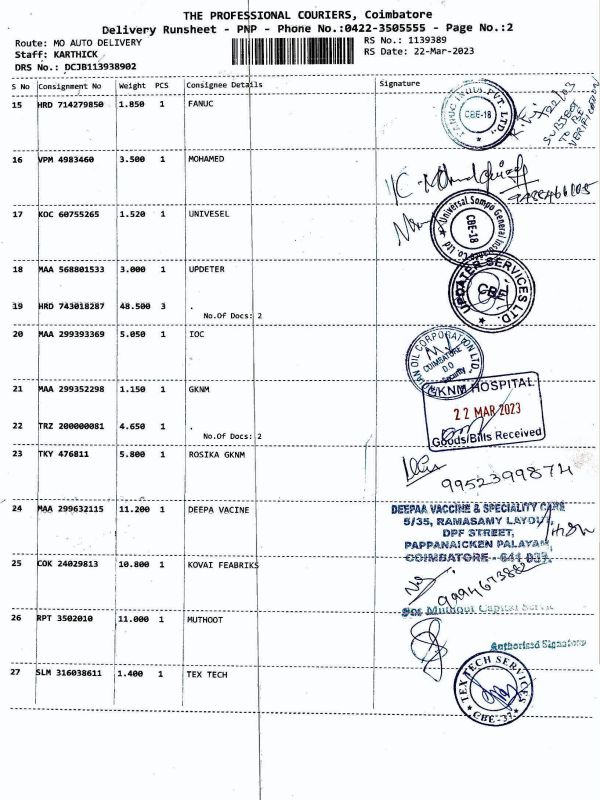 THE PROFESSIONAL COURIERS, Coimbatore
Delivery Runsheet - PNP - Phone No.:0422-3505555 - Page No.:2
Route: MO AUTO DELIVERY
RS No.: 1139389
Staff: KARTHICK
RS Date: 22-Mar-2023
DRS No.: DCJB113938902
S No Consignment No Weight PCS Consignee Details Signature
15 HRD 714279850 1.850 1 FANUC
FANUC INDIA PVT. LTD.
CBE-18
SUBJECT
TO BE
VERIFICATION
16 VPM 4983460 3.500 1 MOHAMED
17 KOC 60755265 1.520 1 UNIVESEL
Universal Sompo General Insurance Co. Ltd
CBE-18
18 MAA 568801533 3.000 1 UPDETER
UPDATER SERVICES LTD.
CBE
19 HRD 743018287 48.500 3 .
No.Of Docs: 2
20 MAA 299393369 5.050 1 IOC
INDIAN OIL CORPORATION LTD.
COIMBATORE
D.O
Security
21 MAA 299352298 1.150 1 GKNM
GKNM HOSPITAL
22 MAR 2023
Goods/Bills Received
22 TRZ 200000081 4.650 1 .
No.Of Docs: 2
23 TKY 476811 5.800 1 ROSIKA GKNM
9952399874
24 MAA 299632115 11.200 1 DEEPA VACINE
DEEPAA VACCINE & SPECIALITY CARE
5/35, RAMASAMY LAYOUT,
DPF STREET,
PAPPANAICKEN PALAYAM,
COIMBATORE - 641 037.
25 COK 24029813 10.800 1 KOVAI FEABRIKS
9994673882
26 RPT 3502010 11.000 1 MUTHOOT
For Muthoot Capital Service
Authorised Signatory
27 SLM 316038611 1.400 1 TEX TECH
TEXTECH SERVICES
CBE-37